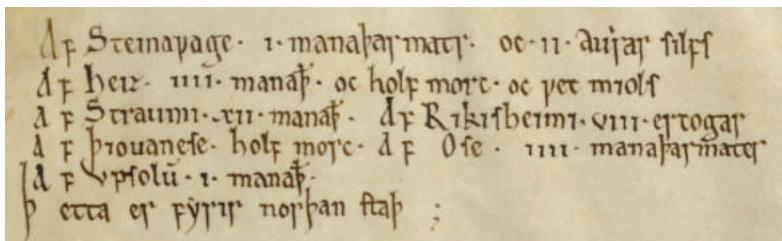 Af Steinavage · i · manaþarmatr · oc · ii · aurar silfs
Af heiz · iiii · manaþ · oc holf morc · oc vet miols
Af Straumi · xii · manaþ · Af Rikisheimi · viii · ertogar
Af þiouanese · holf morc · Af Ose · iiii · manaþarmater
Af Vpsolū · i · manaþ ·
þetta er fẏrir norþan staþ ;